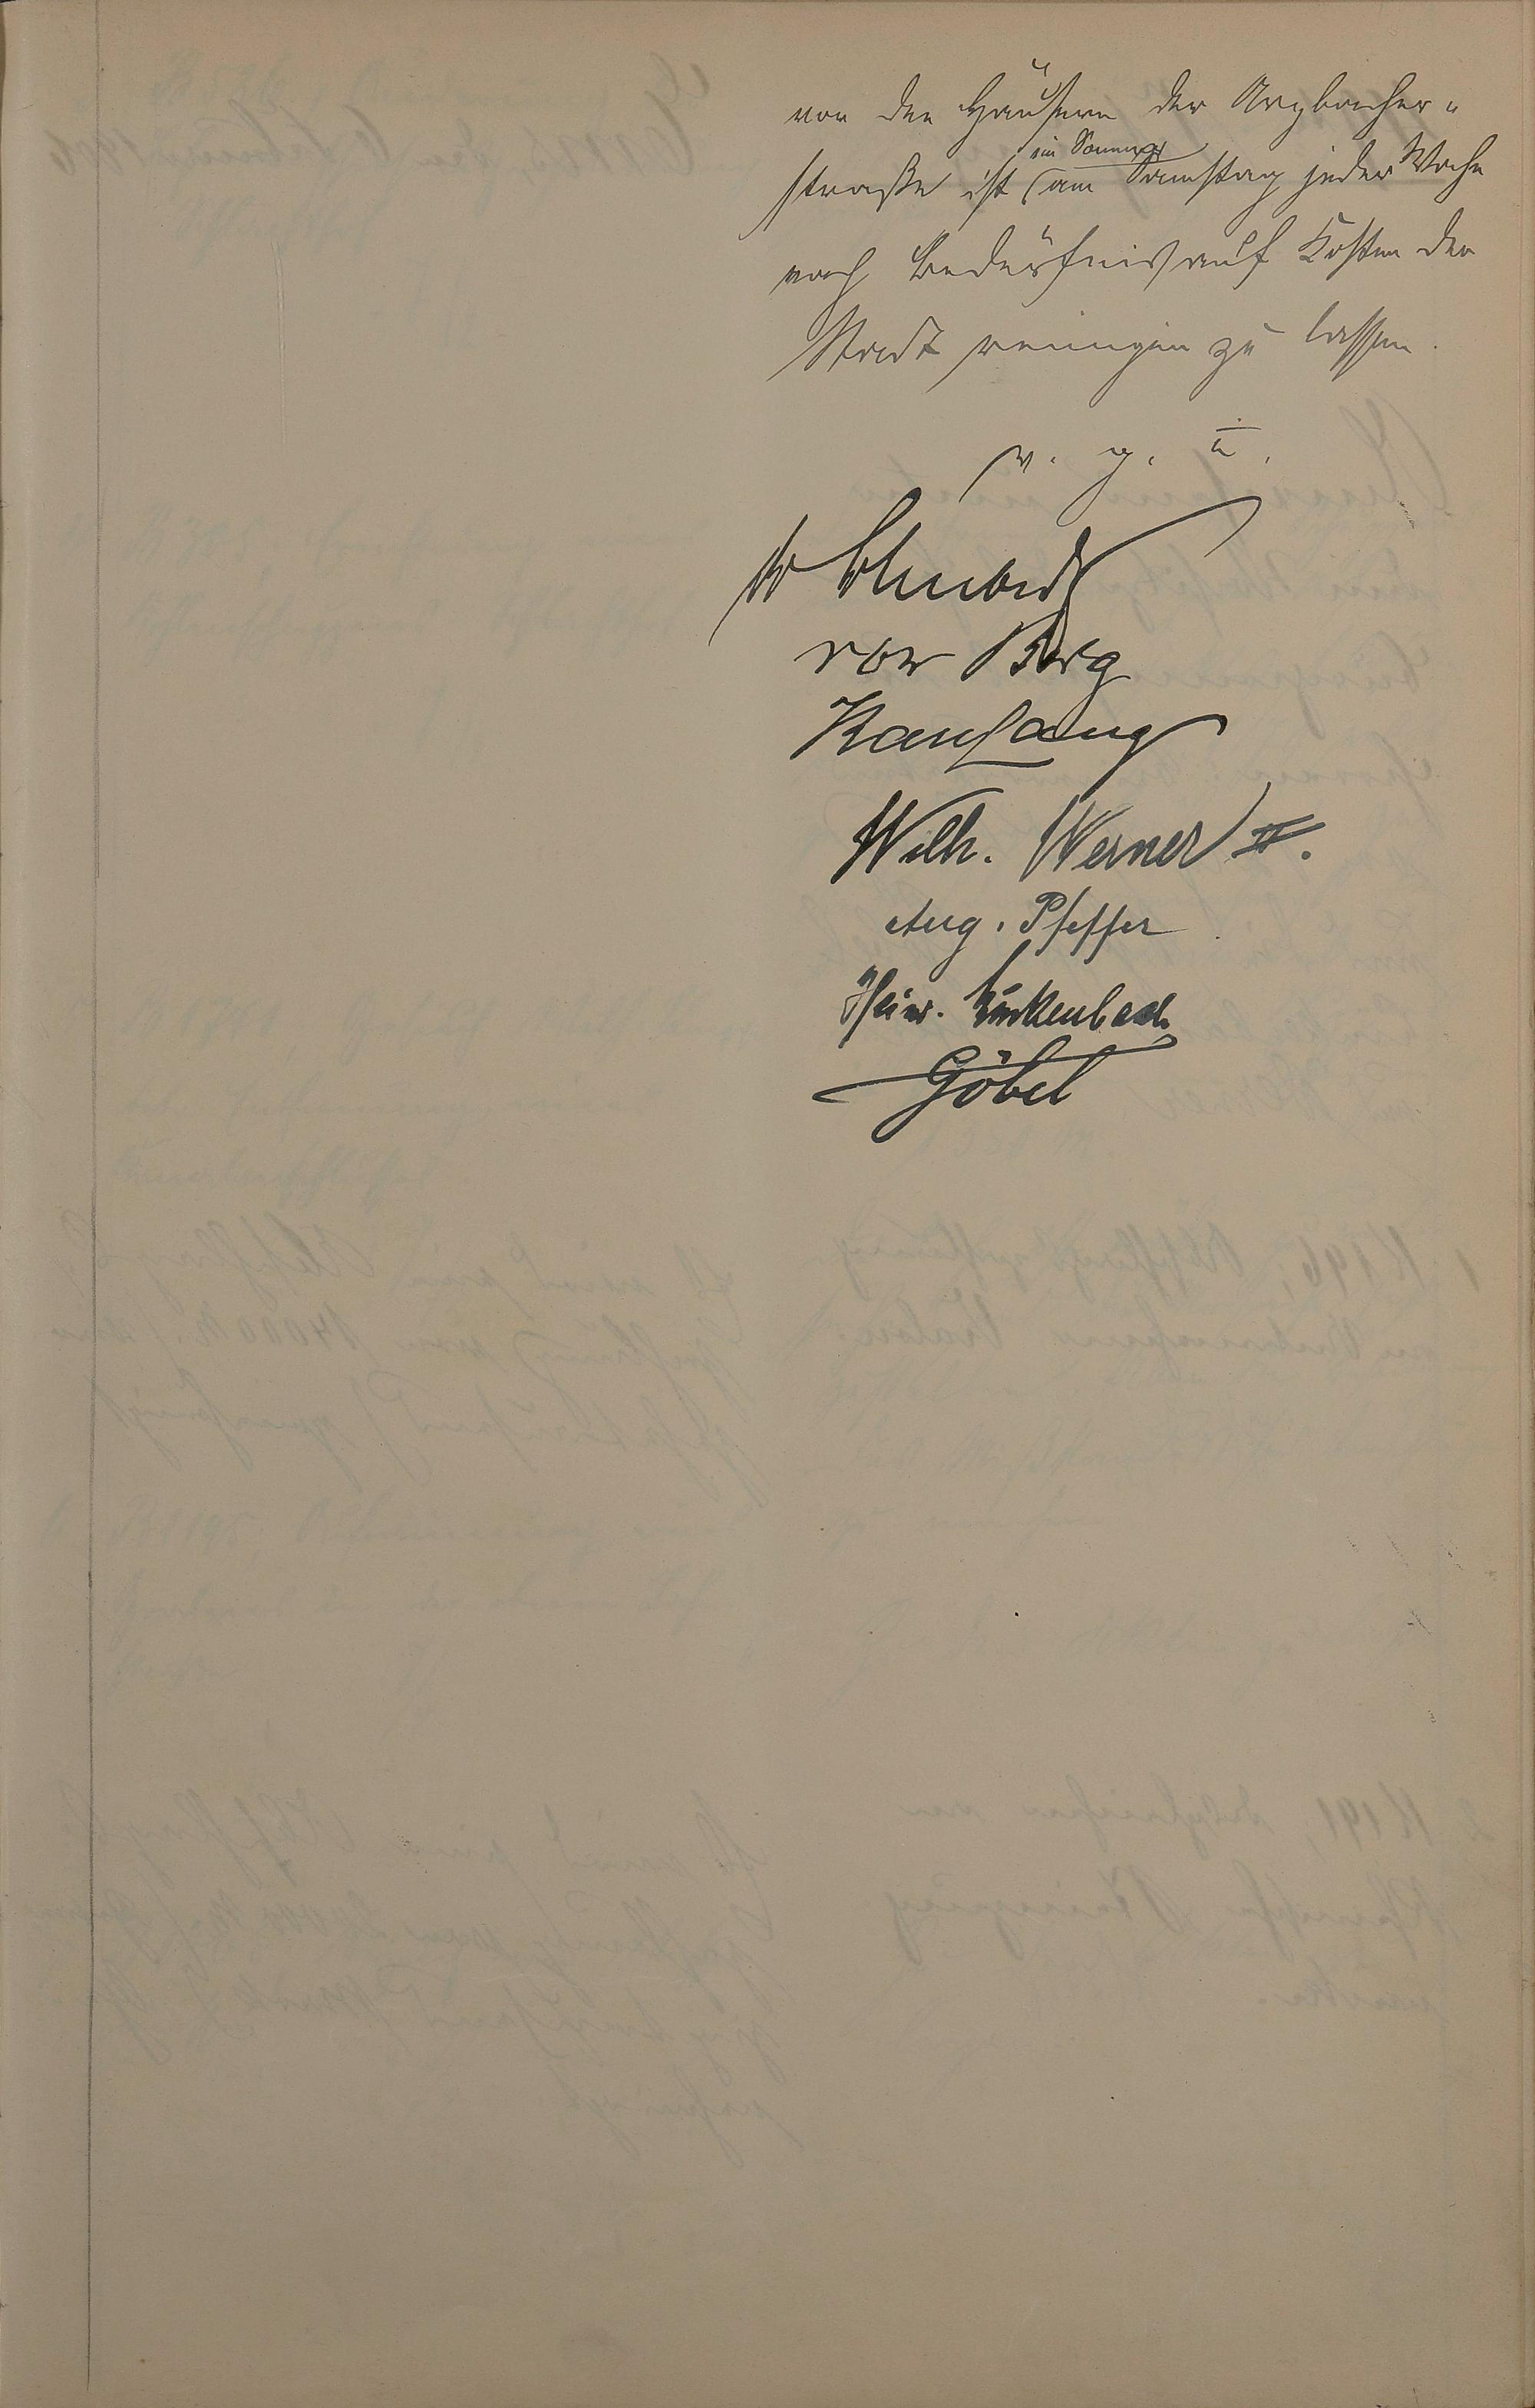 vor den Häusern der Arzbacher-
im Sommer
straße ist am Samstag jeder Woche
nach Bedürfnis auf Kosten der
Stadt reinigen zu lassen.
v. g. u.
von Berg
Wilh. Werner II.
Aug. Pfeffer
Heinr. Linkenbach
Göbel